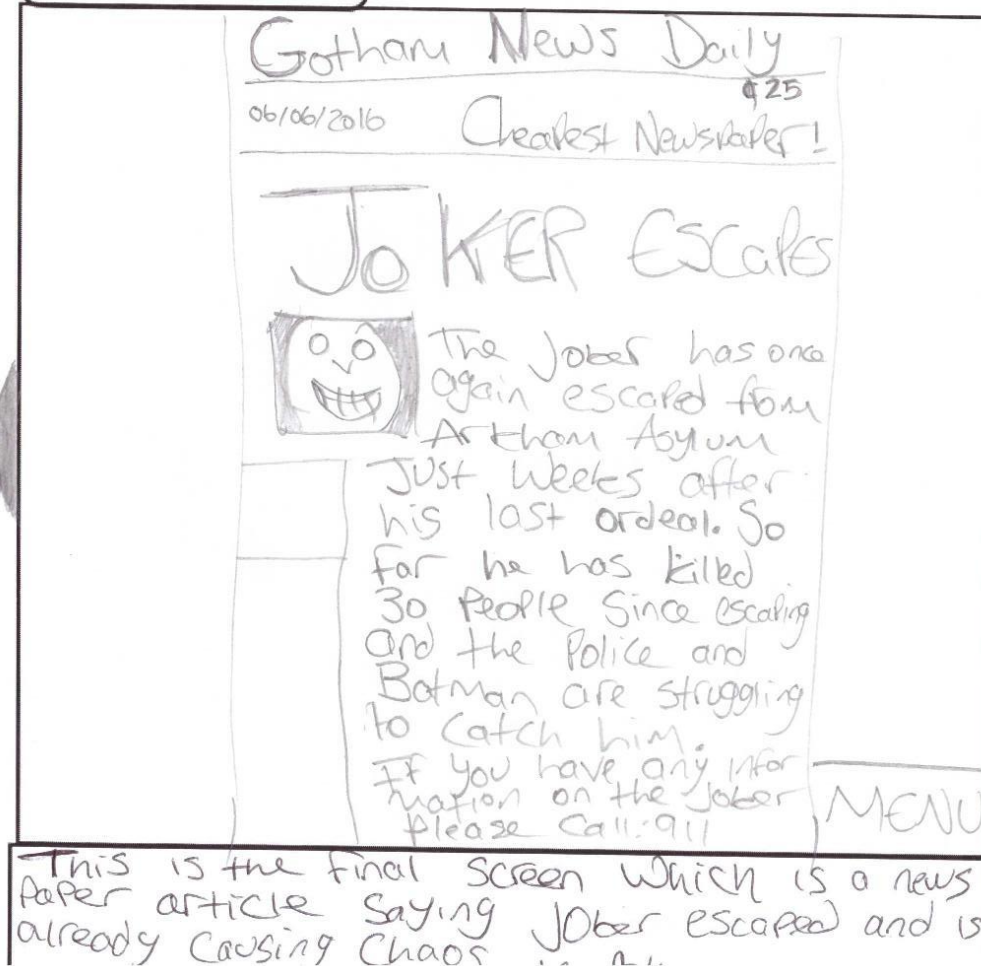 Gotham News Daily
¢25
06/06/2016 Cheapest Newspaper!
JOKER ESCAPES
The Joker has once
again escaped from
Arkham Asylum
Just weeks after
his last ordeal. So
far he has killed
30 People Since escaping
and the Police and
Batman are struggling
to catch him.
If you have any infor
mation on the Joker
Please Call: 911
MENU
This is the final screen which is a news
Paper article saying Joker escaped and is
already causing chaos